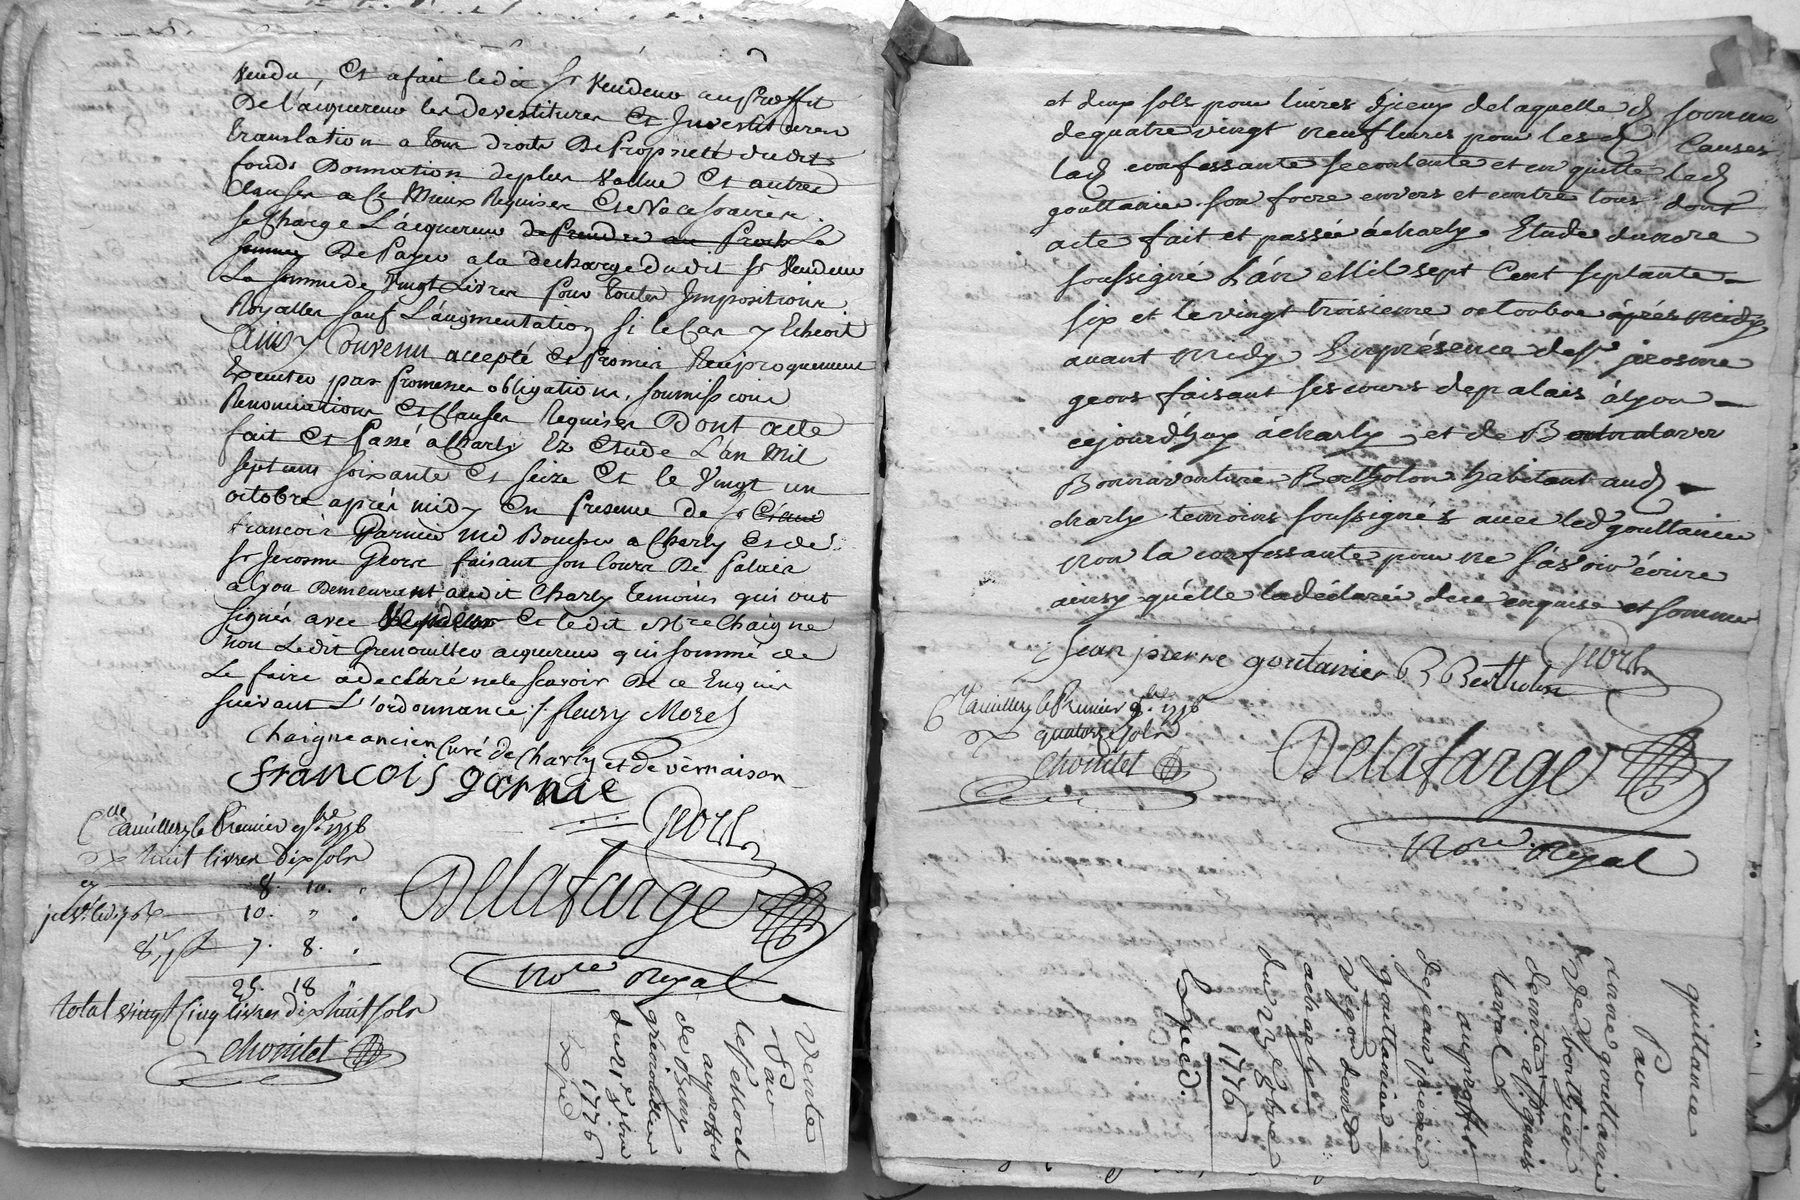 vendu, et a fait ledit sr vendeur au proffit
De l'acquereur les devestitures et Investitures
translation a tous droits De Proprieté dudit
fonds Donnation de plus vallue et autres
Clauses a ce Mieux Requises et Necessaires.
se Charge L'acquereur de prendre au Proch Le
somme De Payer a la decharge dudit sr vendeur
La somme de vingt Livres pour toutes Impositions
Royalles sauf L'augmentation si le Cas y Echeoit
Ainsy Convenu accepté et Promis Reciproquement
Executer par Promesses obligations, soumissions
Renonciations et Clauses Requises Dont acte
fait et Passé a Charly Ez Etude L'an Mil
sept cens soixante et seize et le vingt un
octobre après midy En Presence de sr
francois Garnier md Boucher a Charly et de
sr Jerosme Geors faisant son Cours De Palais
a Lyon Demeurant audit Charly Temoins qui ont
signés avec et ledit Mre Chaigne
non Ledit Grenouiller acquereur qui sommé de
Le faire a declaré ne le scavoir De ce Enquis
suivant L'ordonnance /. fleury Morel
Chaigne ancien Curé de Charly et de vernaison
francois garnie
Geors
Delafarge
Nore Royal
Clle a millery le Premier 9bre 1776
huit livres dix sols
8. 10. "
10. " .
7. 8. .
25. 18 "
total vingt Cinq livres dix huit sols
Chomtet
Vente
Par
le sr Morel
au proffit
de Benoit
grenouiller
du 21e 8bre
1776
Expié
et deux sols pour livres d'jceux de laquelle d somme
de quatre vingt neuf livres pour les d Causes
lad confessante se contente et en quitte led
gouttanier son frere envers et contre tous dont
acte fait et passé à charly Etude du nore
soussigné L'an Mil sept Cent septante
six et le vingt troisieme octoobre après midy
avant midy En présence de sr jerosme
geors faisant ses cours de palais à lyon
cejourd'huy à charly et de
Bonnaventure Bertholon habitant aud
charly temoins soussignés avec led gouttanier
non la confessante pour ne sçavoir écrire
ainsy qu'elle la déclaré de ce enquise et sommée
Jean pierre goutanier B Bertholon Geors
Clle a millery le Premier 9bre 1776
quatorze sols
Chomtet
Delafarge
Nore Royal
quittance
Par
anne gouttanier
laval
au proffit
de jean pierre
gouttanier
vigneron
a charly
du 23e 8bre
1776
Expied.